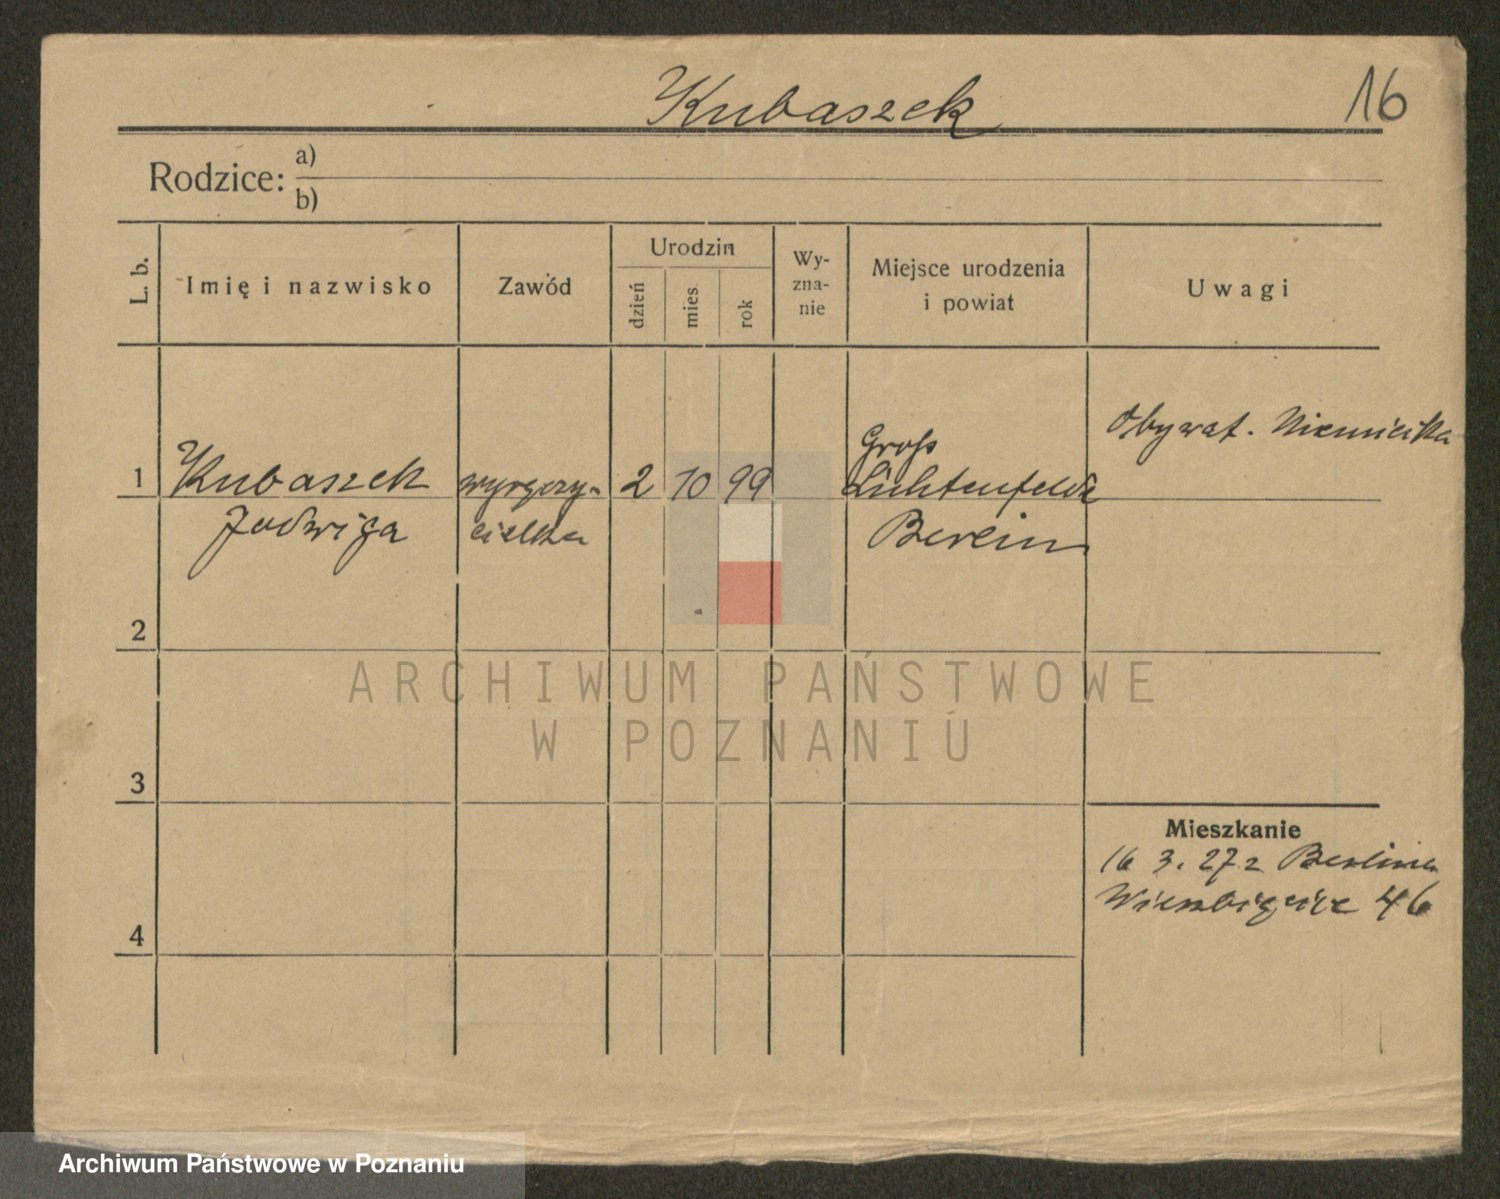 Kubaszek
16
Rodzice: a)
b)
L. b.
Imię i nazwisko
Zawód
Urodzin
dzień
mies.
rok
Wy-
zna-
nie
Miejsce urodzenia
i powiat
Uwagi
Obywat. Niemiecka
1
Kubaszek
Jadwiga
cielka
2
10
99
Gross
Lichtenfelde
Berlin
2
3
4
Mieszkanie
16 3. 27 z Berlina
46
ARCHIWUM PAŃSTWOWE
W POZNANIU
Archiwum Państwowe w Poznaniu